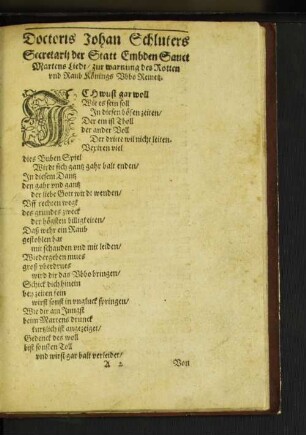 Doctoris Johan Schluters
Secretarij der Statt Embden Sanct
Martens Liedt / zur warnung des Rotten
vnd Raub Königs Vbbo Remetz.
ICH wust gar woll
Wie es sein soll
In diesen bösen zeiten /
Der ein ist Tholl
der ander Voll
Der dritte wil nicht leiten.
viel
dies Buben Spiel
Wirdt sich gantz gahr balt enden /
In diesem Dantz
den gahr vnd gantz
der liebe Gott wirdt wenden /
Vff rechten wegk
des grundes zweck
der högsten billigkeiten /
Daß wehr ein Raub
gestohlen hat
mit schanden vnd mit leiden /
Wiedergeben mues
groß vberdrues
wird dir das Vbbo bringen /
Schick dich hinein
bey zeiten fein
wirst sonst in vngluck springen /
Wie dir am Jungst
beim Martens drunck
kurtzlich ist angezeiget /
Gedenck des woll
bist sonsten Toll
vnd wirst gar balt verleidet /
A 2 Von